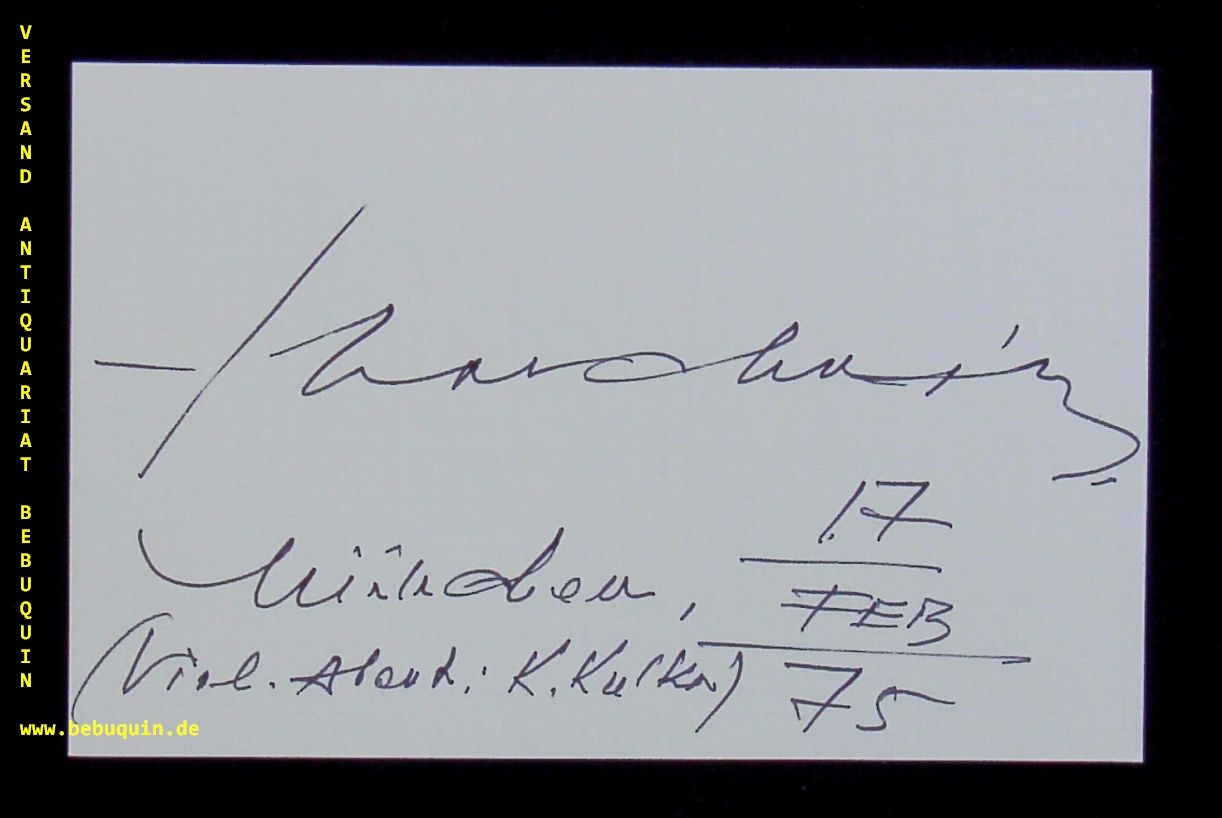 VERSAND ANTIQUARIAT BEBUQUIN
München,
17
FEB
75
(Viol. Abend: K. Kulka)
www.bebuquin.de